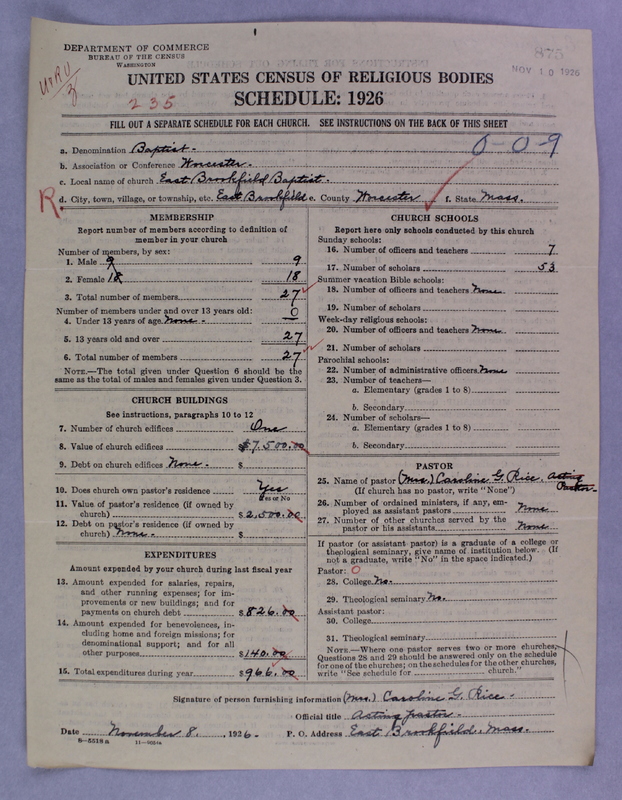 DEPARTMENT OF COMMERCE
BUREAU OF THE CENSUS
WASHINGTON
875
NOV 10 1926
235
UNITED STATES CENSUS OF RELIGIOUS BODIES
SCHEDULE: 1926
FILL OUT A SEPARATE SCHEDULE FOR EACH CHURCH. SEE INSTRUCTIONS ON THE BACK OF THIS SHEET
0-0-9
a. Denomination Baptist.
b. Association or Conference Worcester.
c. Local name of church East Brookfield Baptist.
R
d. City, town, village, or township, etc. East Brookfield e. County Worcester f. State Mass.
MEMBERSHIP
Report number of members according to definition of
member in your church
Number of members, by sex:
1. Male 9 9
2. Female 18 18
3. Total number of members 27
Number of members under and over 13 years old:
4. Under 13 years of age None - 0
5. 13 years old and over 27
6. Total number of members 27
NOTE.—The total given under Question 6 should be the
same as the total of males and females given under Question 3.
CHURCH BUILDINGS
See instructions, paragraphs 10 to 12
7. Number of church edifices One
8. Value of church edifices $7,500.00
9. Debt on church edifices None. $
10. Does church own pastor's residence Yes
Yes or No
11. Value of pastor's residence (if owned by
church) $2,500.00
12. Debt on pastor's residence (if owned by
church) None. $
EXPENDITURES
Amount expended by your church during last fiscal year
13. Amount expended for salaries, repairs,
and other running expenses; for im-
provements or new buildings; and for
payments on church debt $826.00
14. Amount expended for benevolences, in-
cluding home and foreign missions; for
denominational support; and for all
other purposes $140.00
15. Total expenditures during year $966.00
CHURCH SCHOOLS
Report here only schools conducted by this church
Sunday schools:
16. Number of officers and teachers 7
17. Number of scholars 53
Summer vacation Bible schools:
18. Number of officers and teachers None
19. Number of scholars
Week-day religious schools:
20. Number of officers and teachers None
21. Number of scholars
Parochial schools:
22. Number of administrative officers None
23. Number of teachers—
a. Elementary (grades 1 to 8)
b. Secondary
24. Number of scholars—
a. Elementary (grades 1 to 8)
b. Secondary
PASTOR
25. Name of pastor (Mrs.) Caroline G. Rice, Acting
Pastor-
(If church has no pastor, write "None")
26. Number of ordained ministers, if any, em-
ployed as assistant pastors None
27. Number of other churches served by the
pastor or his assistants None
If pastor (or assistant pastor) is a graduate of a college or
theological seminary, give name of institution below. (If
not a graduate, write "No" in the space indicated.)
Pastor: 0
28. College No.
29. Theological seminary No.
Assistant pastor:
30. College
31. Theological seminary
NOTE.—Where one pastor serves two or more churches,
Questions 28 and 29 should be answered only on the schedule
for one of the churches; on the schedules for the other churches,
write "See schedule for church."
Signature of person furnishing information (Mrs.) Caroline G. Rice-
Official title Acting pastor-
Date November 8, 1926. P. O. Address East Brookfield, Mass.
8—5518 a